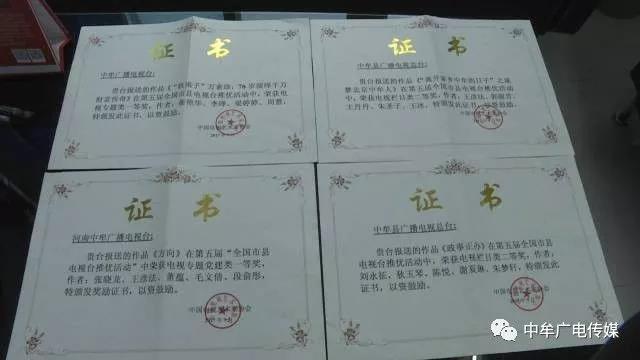 证书
中牟广播电视台:
贵台报送的作品《"铁疯子"万素勋:76岁演绎千万
财富传奇》在第五届全国市县电视台推优活动中,荣获电
视专题类一等奖,作者:
李峥、梁婷婷、周慧,
特颁发此证书,以资鼓励。
证书
中牟县广播电视总台:
贵台报送的作品
攀北京中牟人》在第五届全国市县电视台推优活动
中,荣获电视栏目类二等奖,作者:王彦法、
王丹丹、朱圣子、王冰,特颁发此证书,以资鼓励。
证书
河南中牟广播电视台:
贵台报送的作品《方向》在第五届"全国市县
电视台推优活动"中荣获电视专题党建类一等奖,
作者:张晓龙、王彦法、董蕴、毛文倩、段俞彤,
特颁发奖励证书,以资鼓励。
证书
中牟县广播电视总台:
贵台报送的作品《政事正办》在第五届全国市县
电视台推优活动中,荣获电视栏目类二等奖,作者:
刘永征、狄玉琴、陈悦、谢夏琳、朱梦轩,特颁发此
证书,以资鼓励。
中牟广电传媒